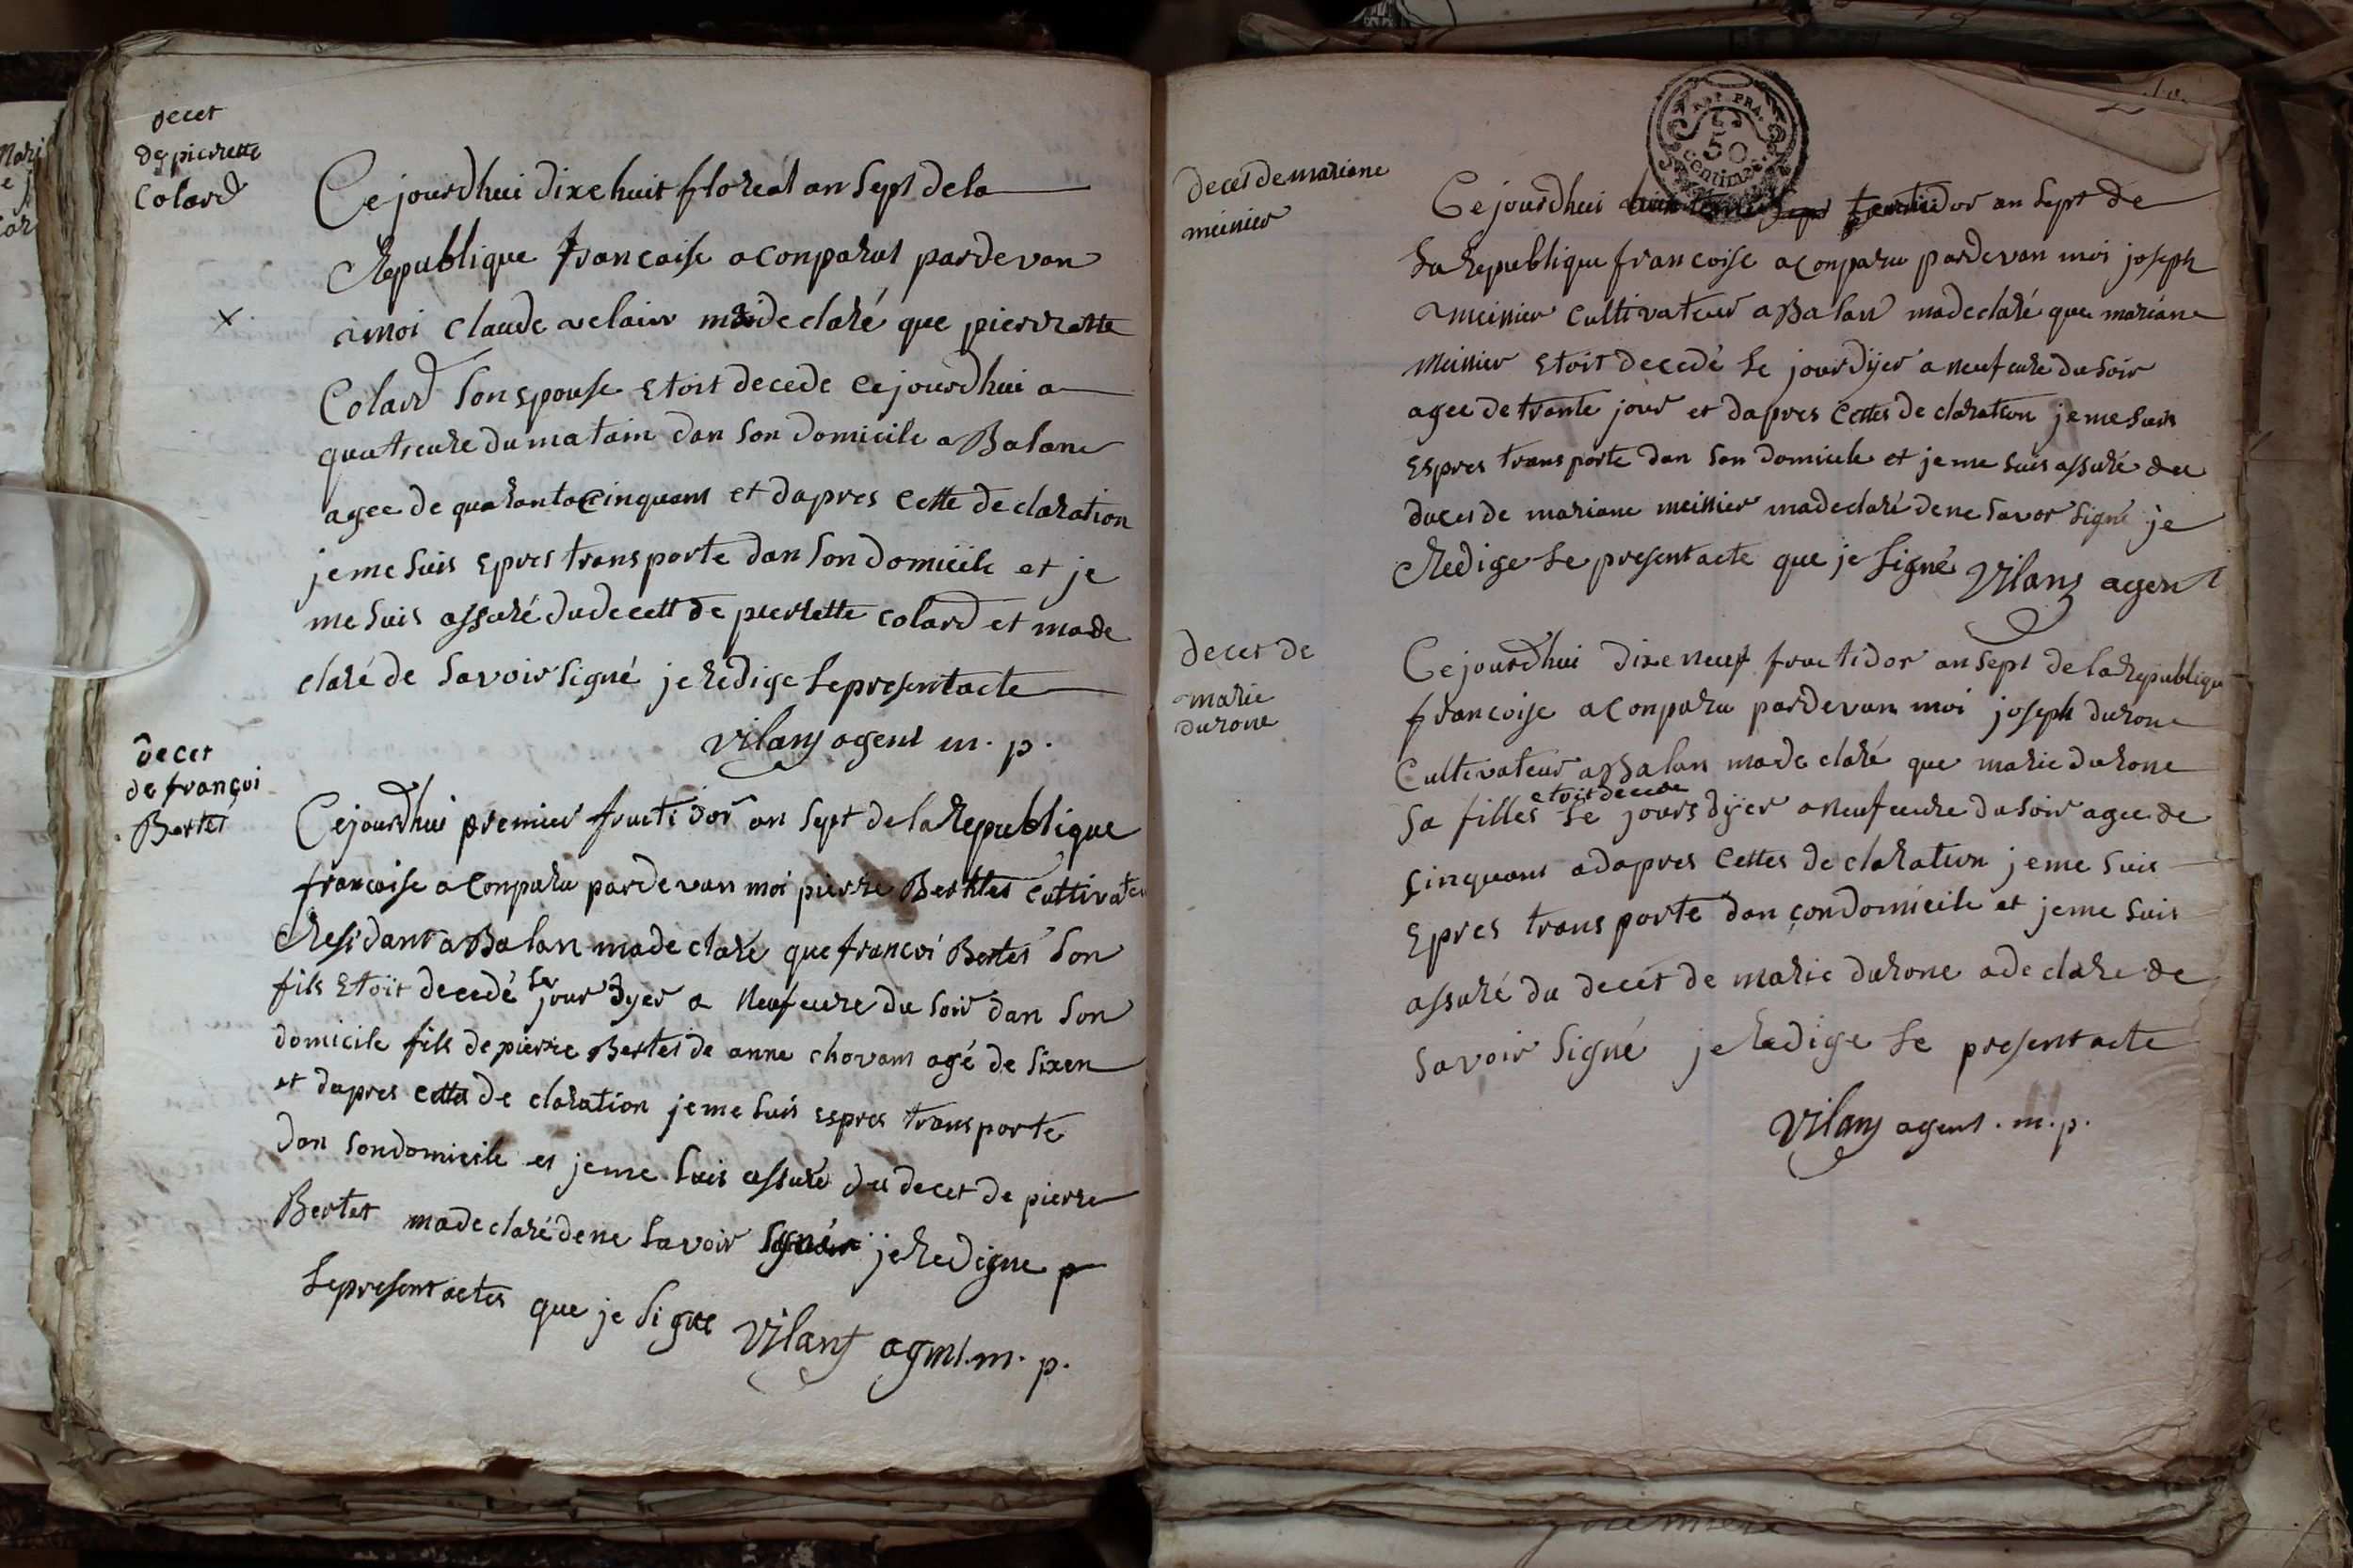 decet
de pierrette
Colard
Ce jourdhui dixe huit floreal an Sept dela
Republique francaise a conparut pardevan
moi claude velair ma declaré que pierrette
Colard Son epouse etoit decede ce jourdhui a
quatreure du matain dan Son domicile a Balan
agee de quarante cinquans et dapres cette declaration
je me Suis epres transporte dan Son domicile et je
me Suis assuré du decett de pierrette colard et made
claré de Savoir Signé je redige Le present acte
Vilany agent m. p.
decet
de françoi
Bertet
Ce jourdhui premier fructidor an Sept de la Republique
francaise a conparu pardevan moi pierre Bertet cultivateu
Residant a Balan ma declaré que francoi Bertet Son
fils etoit decedé Le jour dyer a neufeure du Soir dan Son
domicile fils de pierre Bertet de anne chovans agé de Sixen
et dapres cette declaration je me Suis espres transporte
dan Son domicile et je me Suis assuré du decet de pierre
Bertet ma declaré de ne Savoir je Redigne p
Le present actes que je Signe Vilany agent. m. p.
REP. FRA.
50
centimes.
deces de mariane
meinier
Ce jourdhui an Sept de
La Republique francoise a conparu pardevan moi joseph
meinier cultivateur a Balan ma declaré que mariane
meinier etoit decedé Le jour dyer a neufeure du Soir
agee de trante jour et dapres cettes declaration je me Suis
espres transporte dan Son domicile et je me Suis assuré du
duces de mariane meinier ma declaré de ne Savor Signé je
Redige Le present acte que je Signé Vilany agent
deces de
marie
durone
Ce jourdhui dixe neuf fructidor an Sept de la Republique
francoise a conparu pardevan moi joseph durone
Cultivateur a Balan ma declaré que marie durone
Sa filles etoit decede Le jours dyer a neufeure du Soir agee de
cinquans a dapres cettes declaration je me Suis
epres transporte dan çon domicile et je me Suis
assuré du decet de marie durone a declare de
Savoir Signé je Redige Le present acte
Vilany agent. m. p.